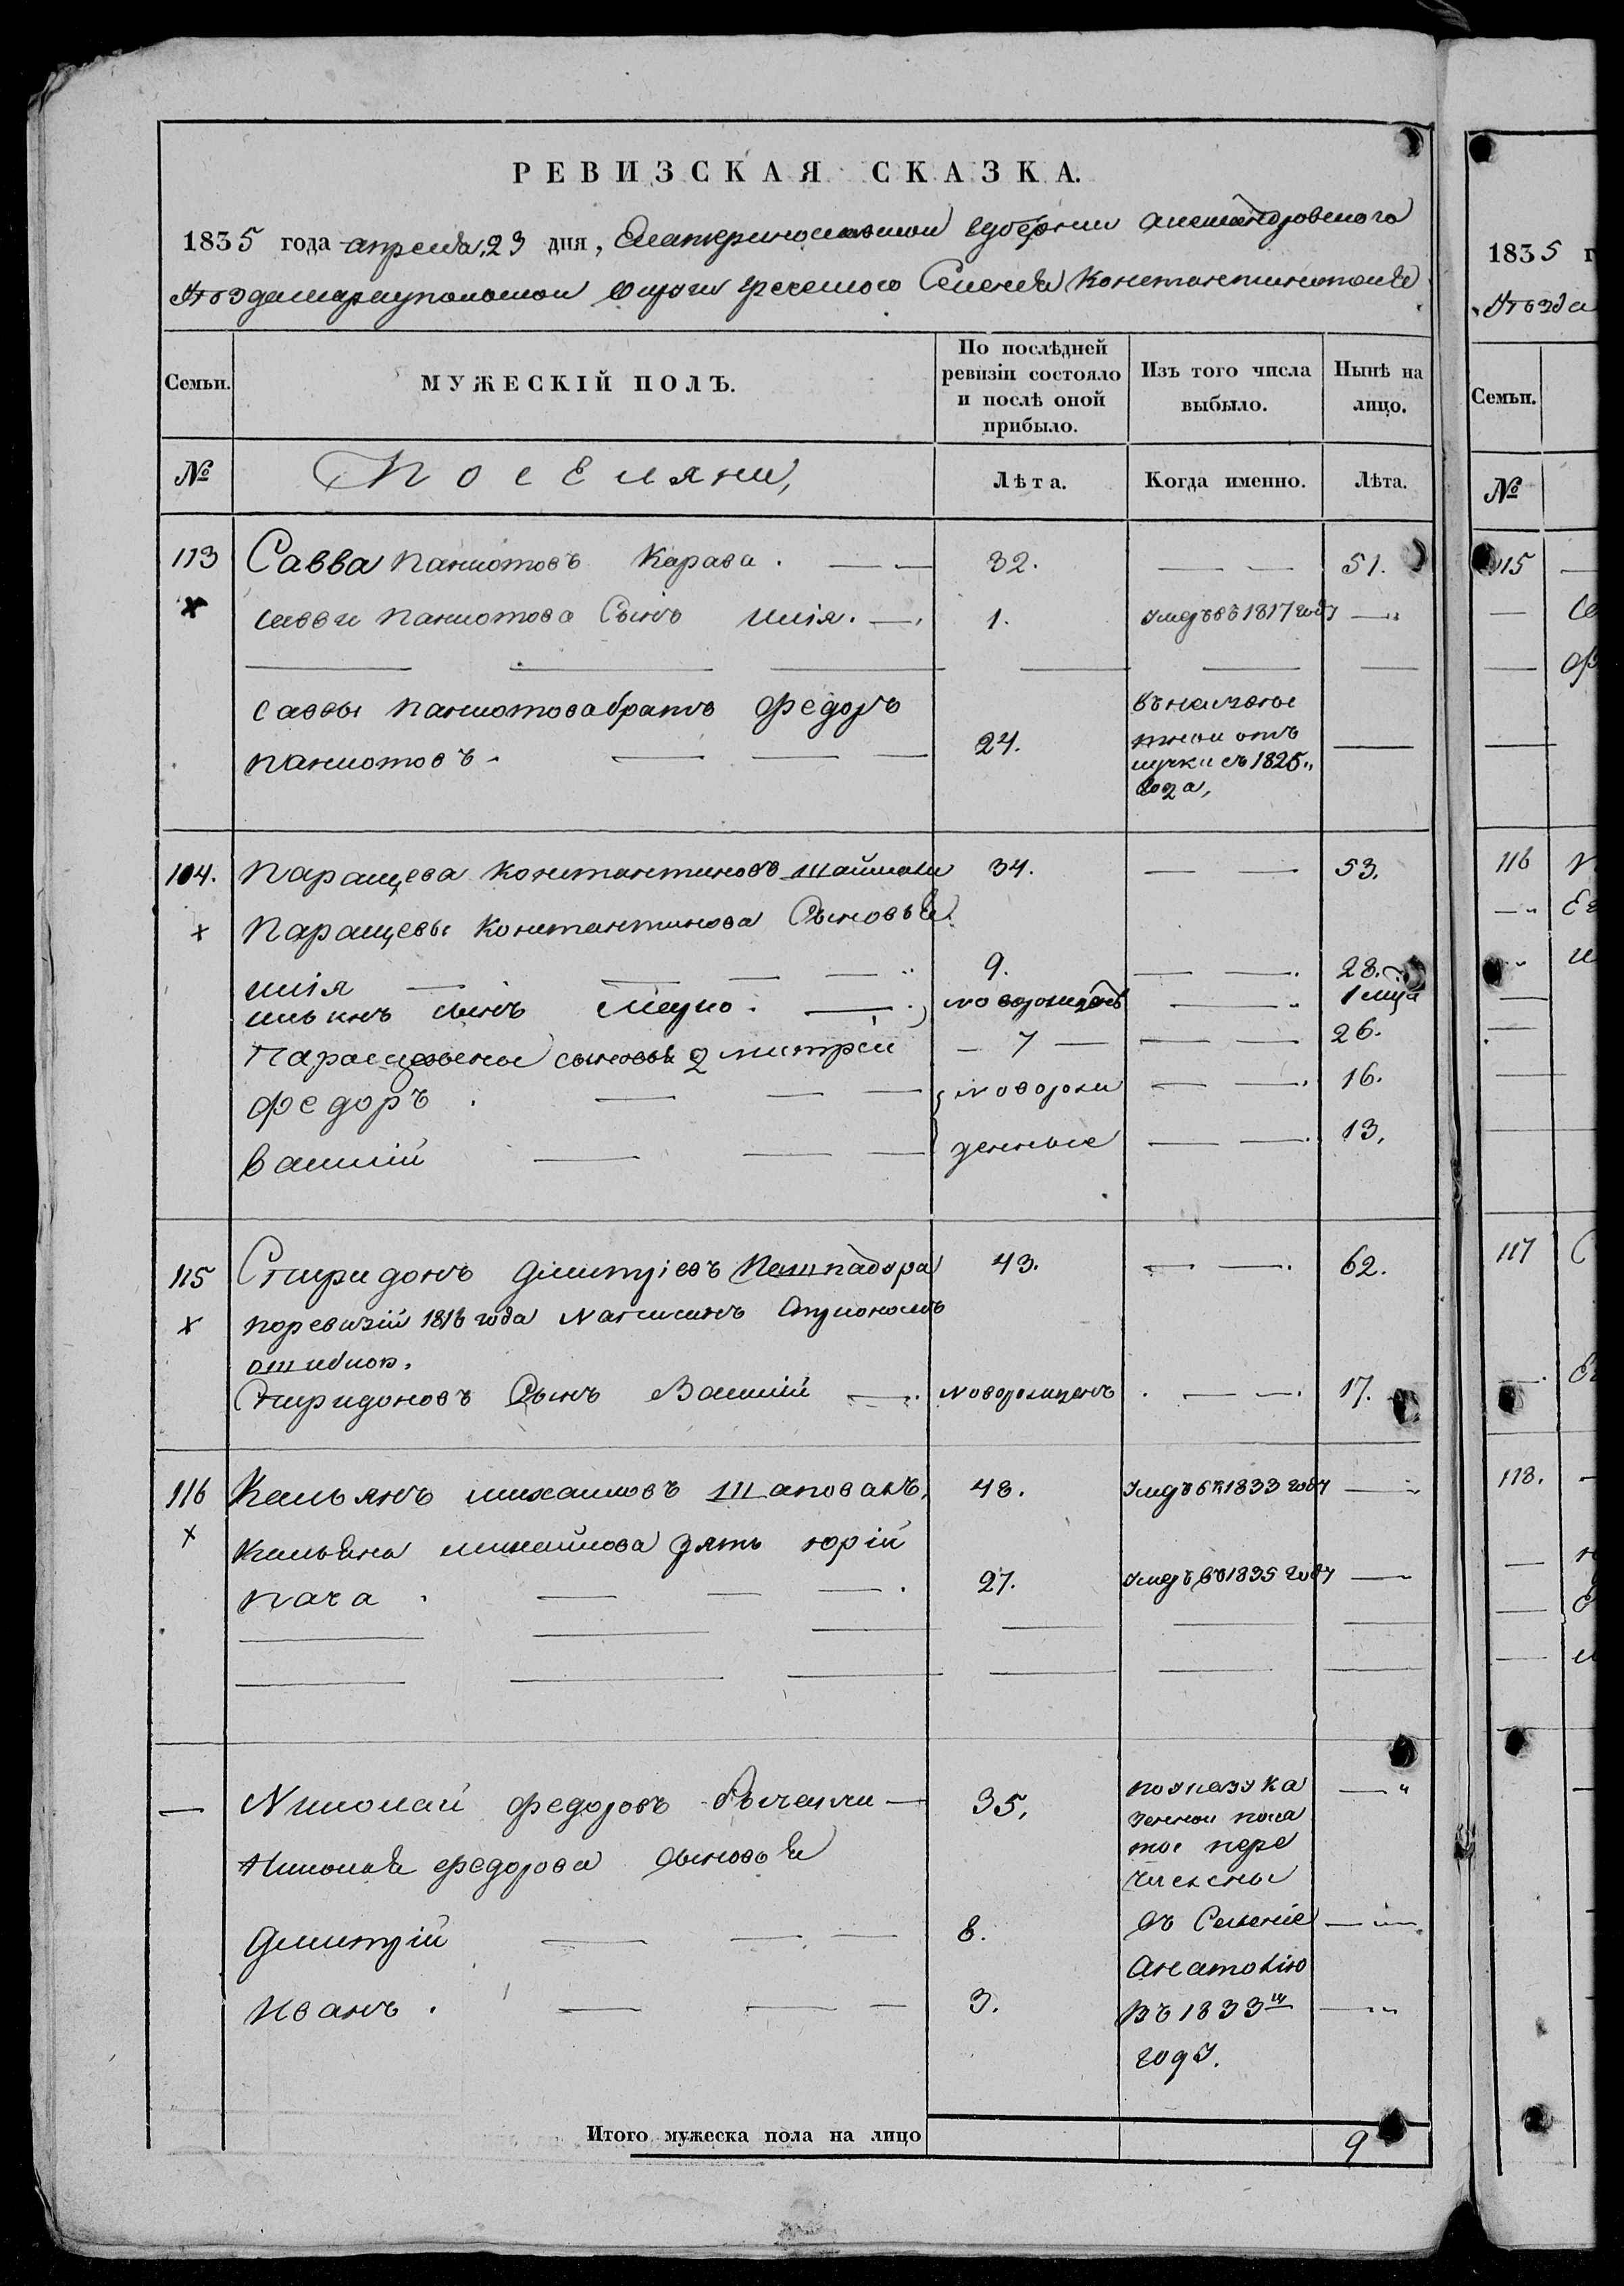 РЕВИЗСКАЯ СКАЗКА.
1835 года апреля 23 дня, Екатеринославской Губернии Александровского
Уезда Мариупольской Округи греческого Селения Константинополя
Семьи. МУЖЕСКІЙ ПОЛЪ. По послѣдней ревизіи состояло и послѣ оной прибыло. Изъ того числа выбыло. Нынѣ на лицо.
№ Поселяни, Лѣта. Когда именно. Лѣта.
113 Савва Паниотовъ Карава. 32. 51.
Саввы Паниотова Сынъ Илія. 1. умеръ въ 1817 году
Саввы Паниотова братъ Федоръ
Паниотовъ. 24. съ 1825 года,
114. Паращева Константиновъ 34. 53.
Паращевы Константинова Сыновья
Илія 9. 28.
Ильинъ сынъ новорожденъ 1
Паращевины сыновья Дмитрей 7 26.
Федоръ. новорож 16.
Василій денные 13.
115 Спиридонъ Дмитріевъ Пашпадура 43. 62.
по ревизіи 1816 года написанъ
ошибкою.
Спиридоновъ Сынъ Василій новорожденъ 17.
116 Касьянъ Михайловъ Шаповалъ, 48. умеръ въ 1833 году
Касьяна Михайлова зять Юрій
Пача. 27. умеръ въ 1835 году
Николай Федоровъ 35. по указу ка
зенной пала
ты пере
Николая Федорова сыновья числены
Дмитрій 8. въ Селеніе
Анатолію
Иванъ. 3. въ 1833 м
году.
Итого мужеска пола на лицо 9
1835 г
Уезда
Семьи.
№
115
116
117
118.